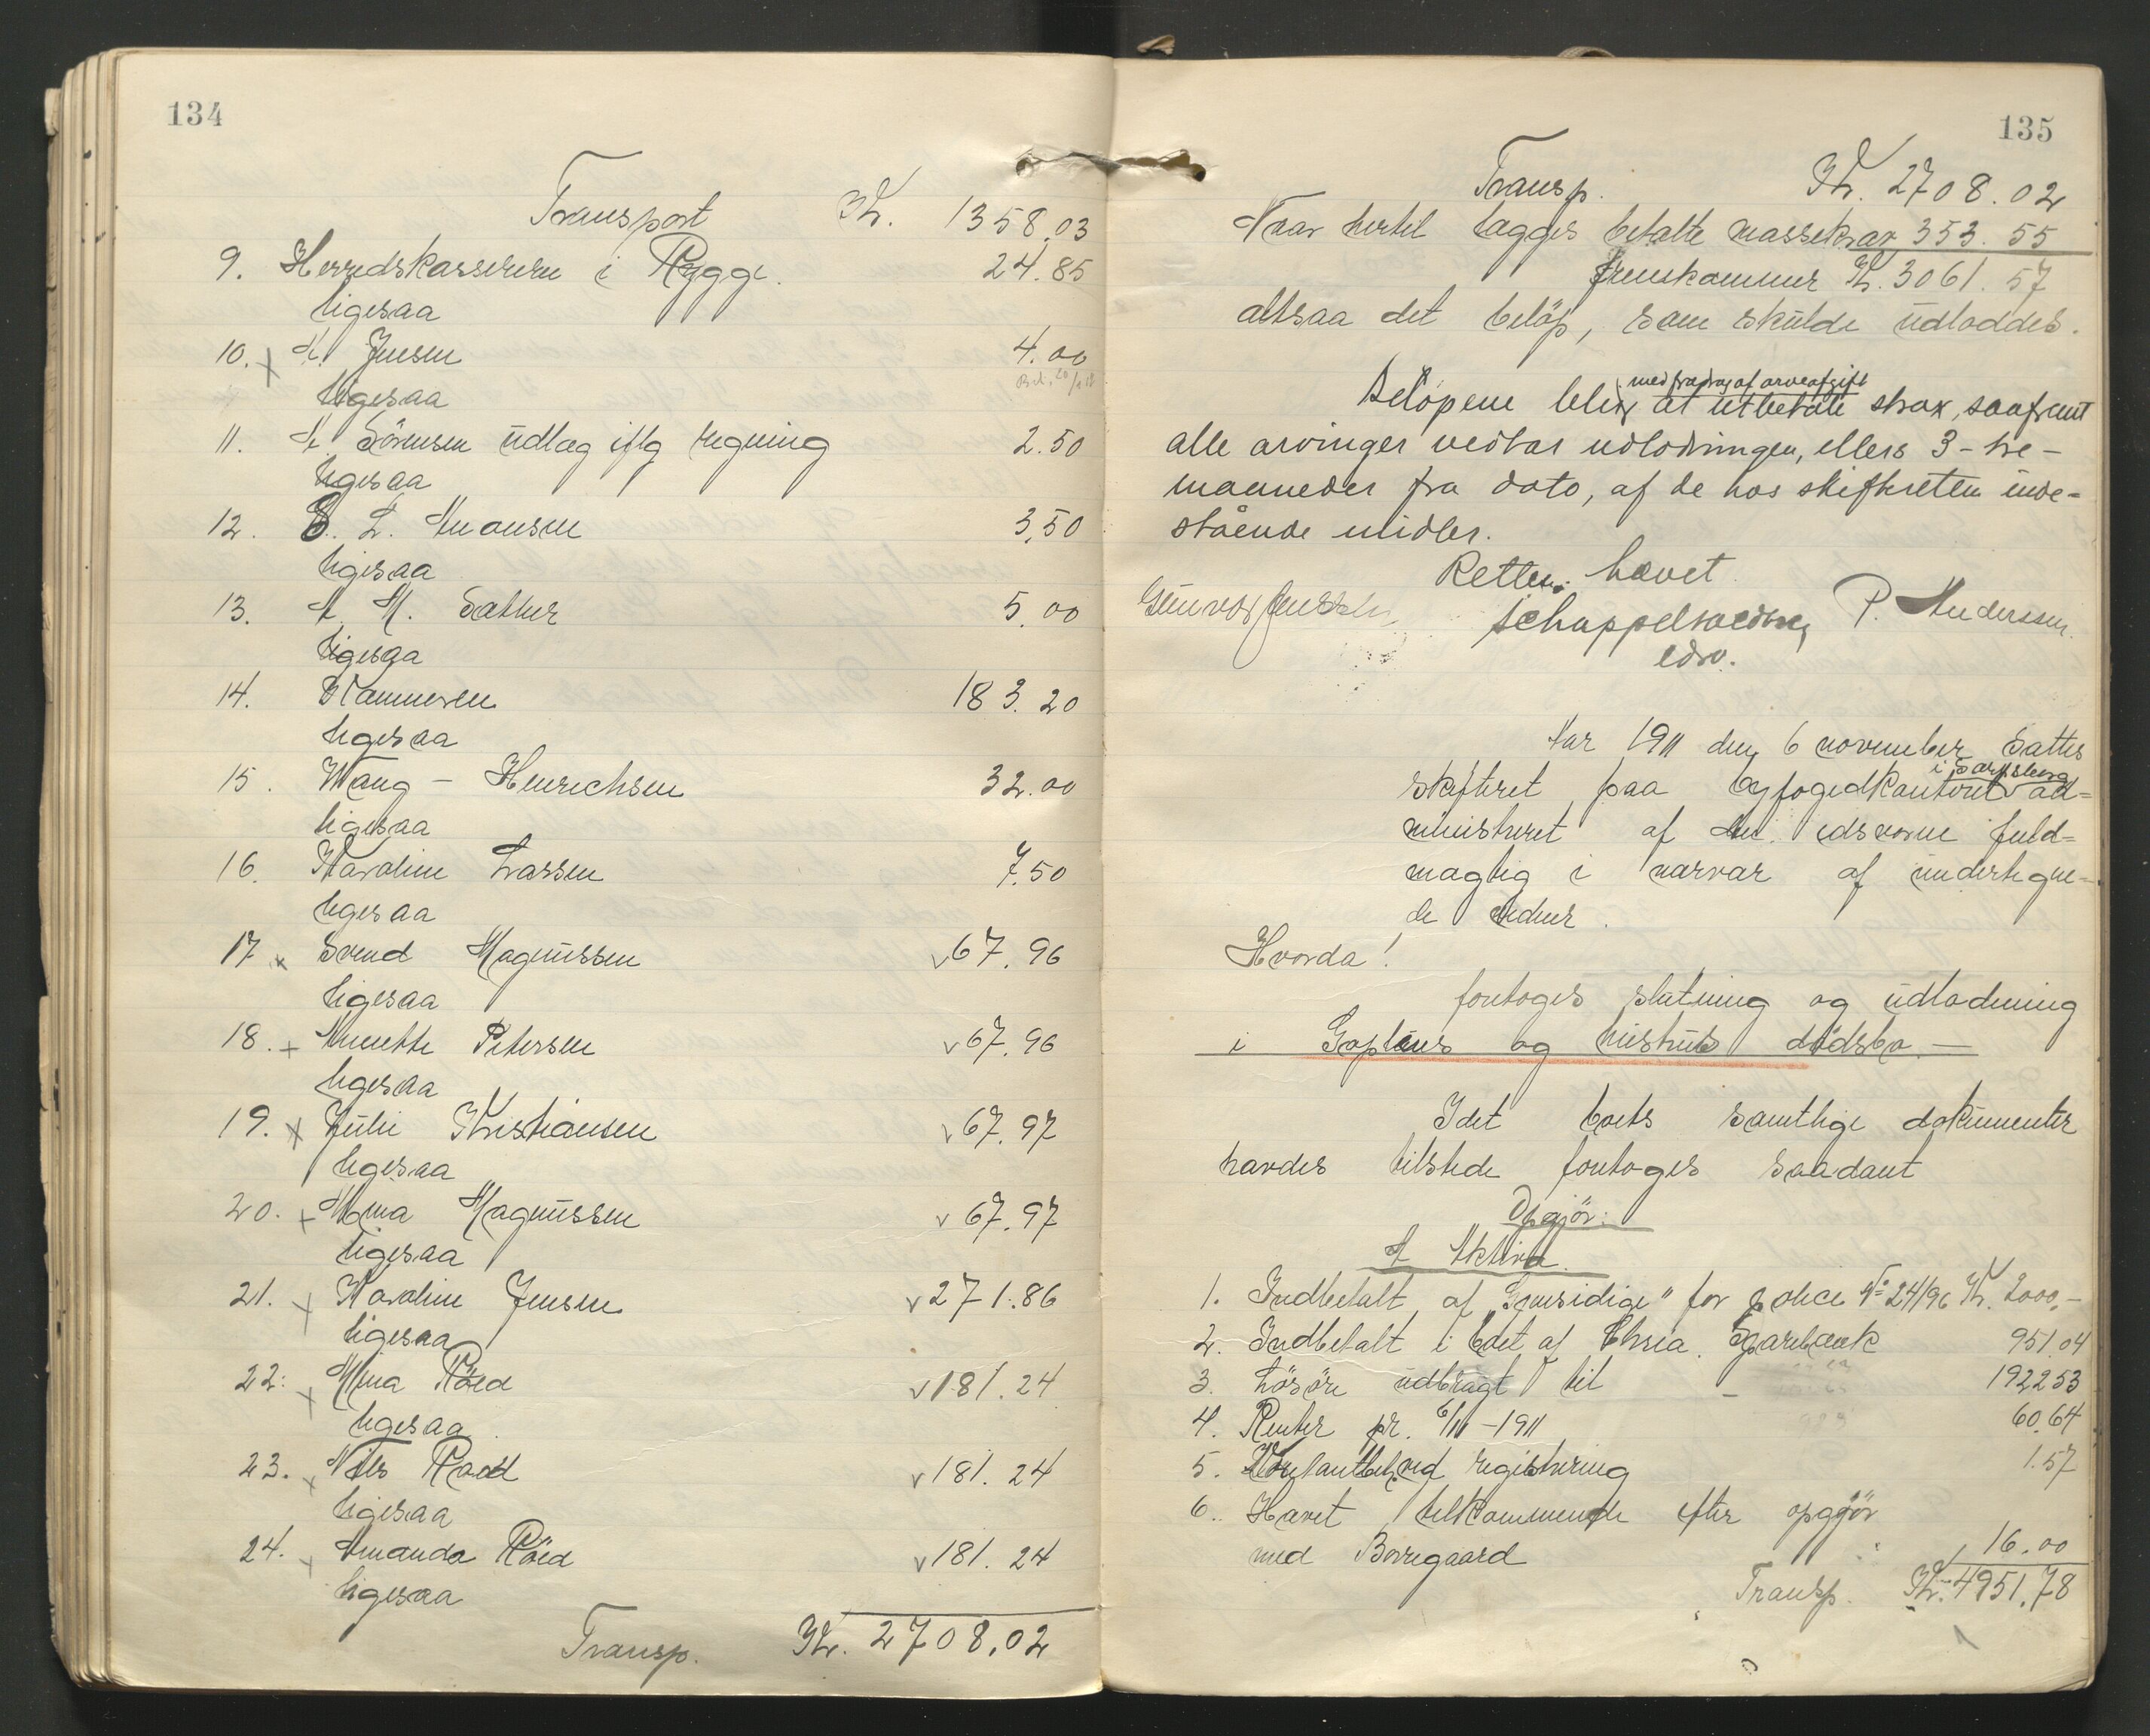 134
Transport Kr. 1358.03
9. Herredskassereren i Rygge. 24.85
ligesaa
10. A. Jensen 4.00
ligesaa
11. A. Sörensen udlæg iflg regning 2.50
ligesaa
12. E. L. Amonsen 3.50
ligesaa
13. A. M. Sæther 5.00
ligesaa
14. Stammeren 183.20
ligesaa
15. Wang - Henrichsen 32.00
ligesaa
16. Karoline Larsen 7.50
ligesaa
17 x Svend Magnussen v 67.96
ligesaa
18. + Annette Petersen v 67.96
ligesaa
19. x Julie Kristiansen v 67.97
ligesaa
20. + Anna Magnussen v 67.97
ligesaa
21. + Karoline Jensen v 271.86
ligesaa
22. + Mina Röed v 181.24
ligesaa
23. x Nils Röed v 181.24
ligesaa
24. + Amanda Röed v 181.24
ligesaa
Transp. Kr. 2708.02
135
Transp. Kr. 2708.02
Naar hertil lægges betalte massekrav 353.55
fremkommer Kr. 3061.57
altsaa det beløp, som skulde udloddes.
med fradrag af arveafgift
Beløpene blir at utbetale strax, saafremt
alle arvinger vedtar udlodningen, ellers 3 - tre -
maaneder fra dato, af de hos skifteretten inde=
stående midler.
Retten hævet
Gunvor Jenssen P. Anderssen
edsv.
Aar 1911 den 6 november sattes
i Sarpsborg
skifteret paa byfogedkontoret ad=
ministreret af den edsvorne fuld=
mægtig i nærvær af undertegne-
de vidner.
Hvorda!
foretoges slutning og udlodning
i Gapléns og hustrus dödsbo. -
Idet boets samtlige dokumenter
havdes tilstede foretoges saadant
Opgjör:
A Aktiva.
1. Indbetalt af "Gjensidige" for police № 24196 Kr. 2000,-
2. Indbetalt i boet af Chria. Sparebank 951.04
3. Lösöre udbragt til - 1922 53
4. Renter pr. 6/11 - 1911 60.64
5. Kontantbeh. ved registrering 1.57
6. Hævet tilkommende efter opgjör
med Borregaard 16.00
Transp. Kr. 4951.78